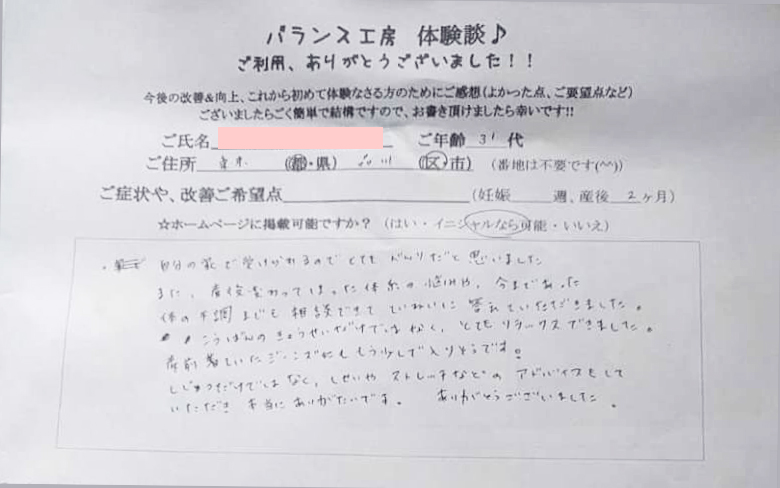 バランス工房 体験談♪
ご利用、ありがとうございました！！
今後の改善&向上、これから初めて体験なさる方のためにご感想(よかった点、ご要望点など)
ございましたらごく簡単で結構ですので、お書き頂けましたら幸いです!!
ご氏名 ご年齢 31 代
ご住所 東京 (都・県) 品川 (区・市) (番地は不要です(^^))
ご症状や、改善ご希望点 (妊娠 週、産後 2ヶ月)
☆ホームページに掲載可能ですか？ (はい・イニシャルなら可能・いいえ)
・ 自分の家で受けられるのでとてもべんりだと思いました
また、産後変わってしまった体系の悩みや、今まであった
体の不調までも相談できてていねいに答えていただきました。
こつばんのきょうせいだけではなく、とてもリラックスできました。
産前着ていたジーンズにももう少しで入りそうです!
しじゅつだけではなく、しせいやストレッチなどのアドバイスもして
いただき本当にありがたいです。 ありがとうございました。